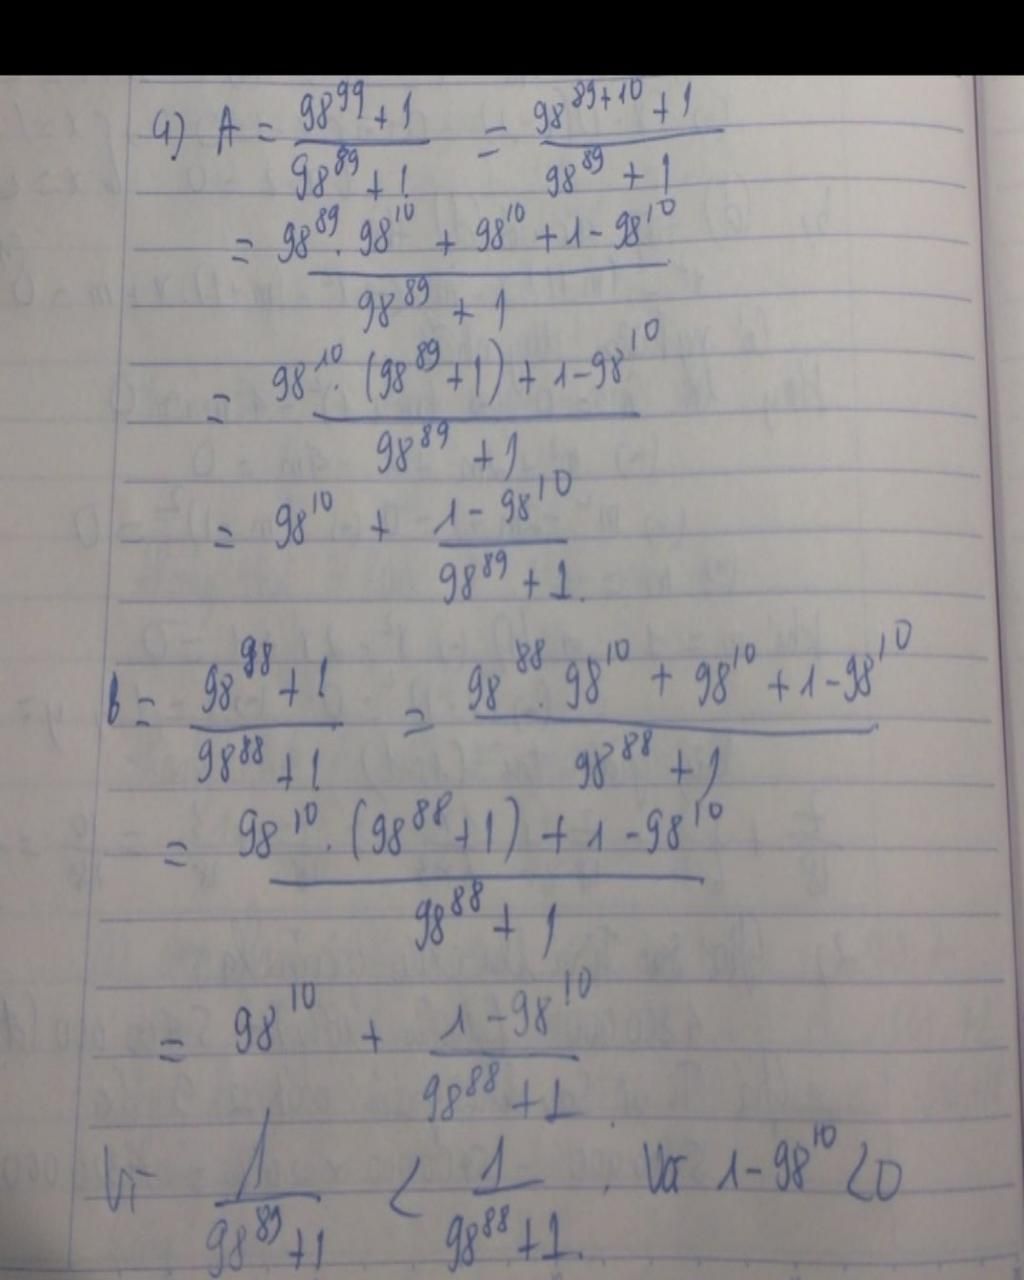 4) A = \frac{98^{99}+1}{98^{89}+1} = \frac{98^{89+10}+1}{98^{89}+1}
= \frac{98^{89}.98^{10}+98^{10}+1-98^{10}}{98^{89}+1}
= \frac{98^{10}.(98^{89}+1)+1-98^{10}}{98^{89}+1}
= 98^{10} + \frac{1-98^{10}}{98^{89}+1}.
B = \frac{98^{98}+1}{98^{88}+1} = \frac{98^{88}.98^{10}+98^{10}+1-98^{10}}{98^{88}+1}
= \frac{98^{10}.(98^{88}+1)+1-98^{10}}{98^{88}+1}
= 98^{10} + \frac{1-98^{10}}{98^{88}+1}.
Vì \frac{1}{98^{89}+1} < \frac{1}{98^{88}+1}. Và 1-98^{10}<0